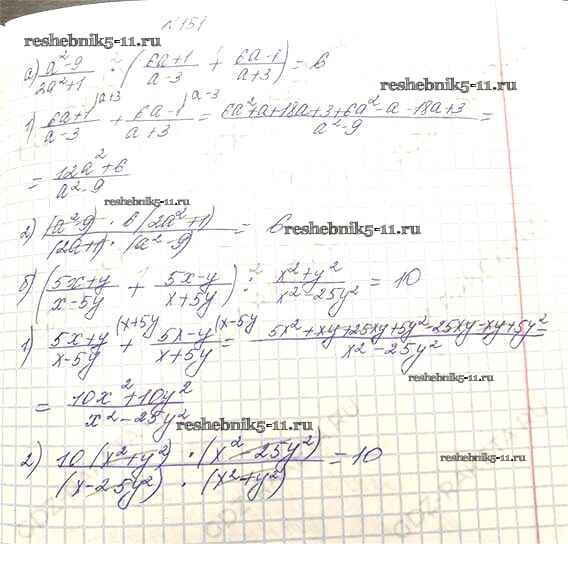 № 151
reshebnik5-11.ru
а) (a²-9)/(2a²+1) : ((6a+1)/(a-3) + (6a-1)/(a+3)) = 6
1) (6a+1)/(a-3) |a+3 + (6a-1)/(a+3) |a-3 = (6a²+a+18a+3+6a²-a-18a+3)/(a²-9) =
reshebnik5-11.ru
= (12a²+6)/(a²-9)
reshebnik5-11.ru
2) ((a²-9) · 6(2a²+1))/((2a+1) · (a²-9)) = 6
reshebnik5-11.ru
б) ((5x+y)/(x-5y) + (5x-y)/(x+5y)) : (x²+y²)/(x²-25y²) = 10
1) (5x+y)/(x-5y) (x+5y + (5x-y)/(x+5y) (x-5y = (5x²+xy+25xy+5y²-25xy-xy+5y²)/(x²-25y²) =
= (10x²+10y²)/(x²-25y²)
reshebnik5-11.ru
reshebnik5-11.ru
2) (10(x²+y²) · (x²-25y²))/((x-25y²) · (x²+y²)) = 10
reshebnik5-11.ru